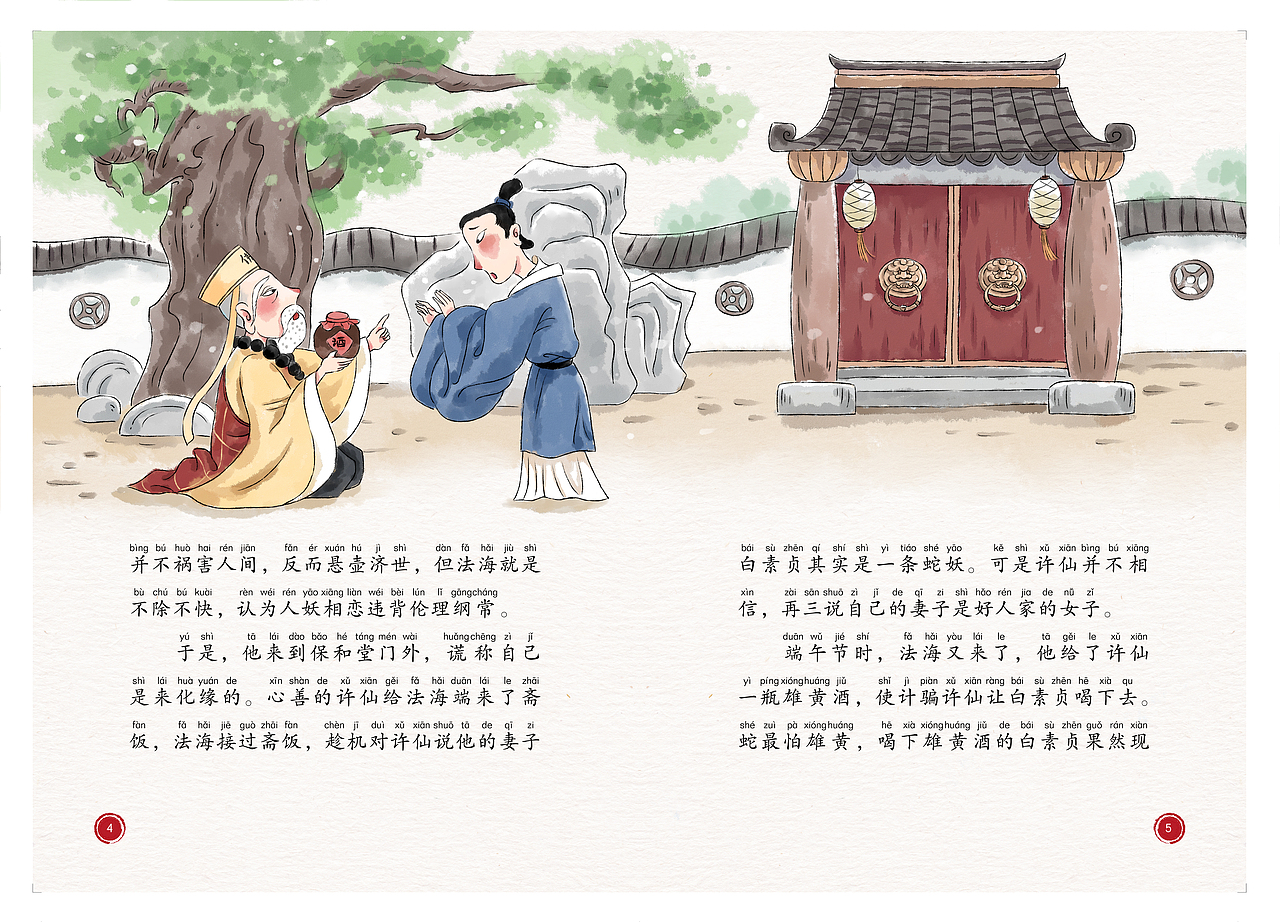 酒
bìng bú huò hai rén jiān fǎn ér xuán hú jì shì dàn fǎ hǎi jiù shì
并不祸害人间，反而悬壶济世，但法海就是
bù chú bú kuài rèn wéi rén yāo xiāng liàn wéi bèi lún lǐ gāng cháng
不除不快，认为人妖相恋违背伦理纲常。
yú shì tā lái dào bǎo hé táng mén wài huǎng chēng zì jǐ
于是，他来到保和堂门外，谎称自己
shì lái huà yuán de xīn shàn de xǔ xiān gěi fǎ hǎi duān lái le zhāi
是来化缘的。心善的许仙给法海端来了斋
fàn fǎ hǎi jiē guò zhāi fàn chèn jī duì xǔ xiān shuō tā de qī zi
饭，法海接过斋饭，趁机对许仙说他的妻子
4
bái sù zhēn qí shí shì yì tiáo shé yāo kě shì xǔ xiān bìng bú xiāng
白素贞其实是一条蛇妖。可是许仙并不相
xìn zài sān shuō zì jǐ de qī zi shì hǎo rén jia de nǚ zǐ
信，再三说自己的妻子是好人家的女子。
duān wǔ jié shí fǎ hǎi yòu lái le tā gěi le xǔ xiān
端午节时，法海又来了，他给了许仙
yì píng xióng huáng jiǔ shǐ jì piàn xǔ xiān ràng bái sù zhēn hē xià qu
一瓶雄黄酒，使计骗许仙让白素贞喝下去。
shé zuì pà xióng huáng hē xià xióng huáng jiǔ de bái sù zhēn guǒ rán xiàn
蛇最怕雄黄，喝下雄黄酒的白素贞果然现
5